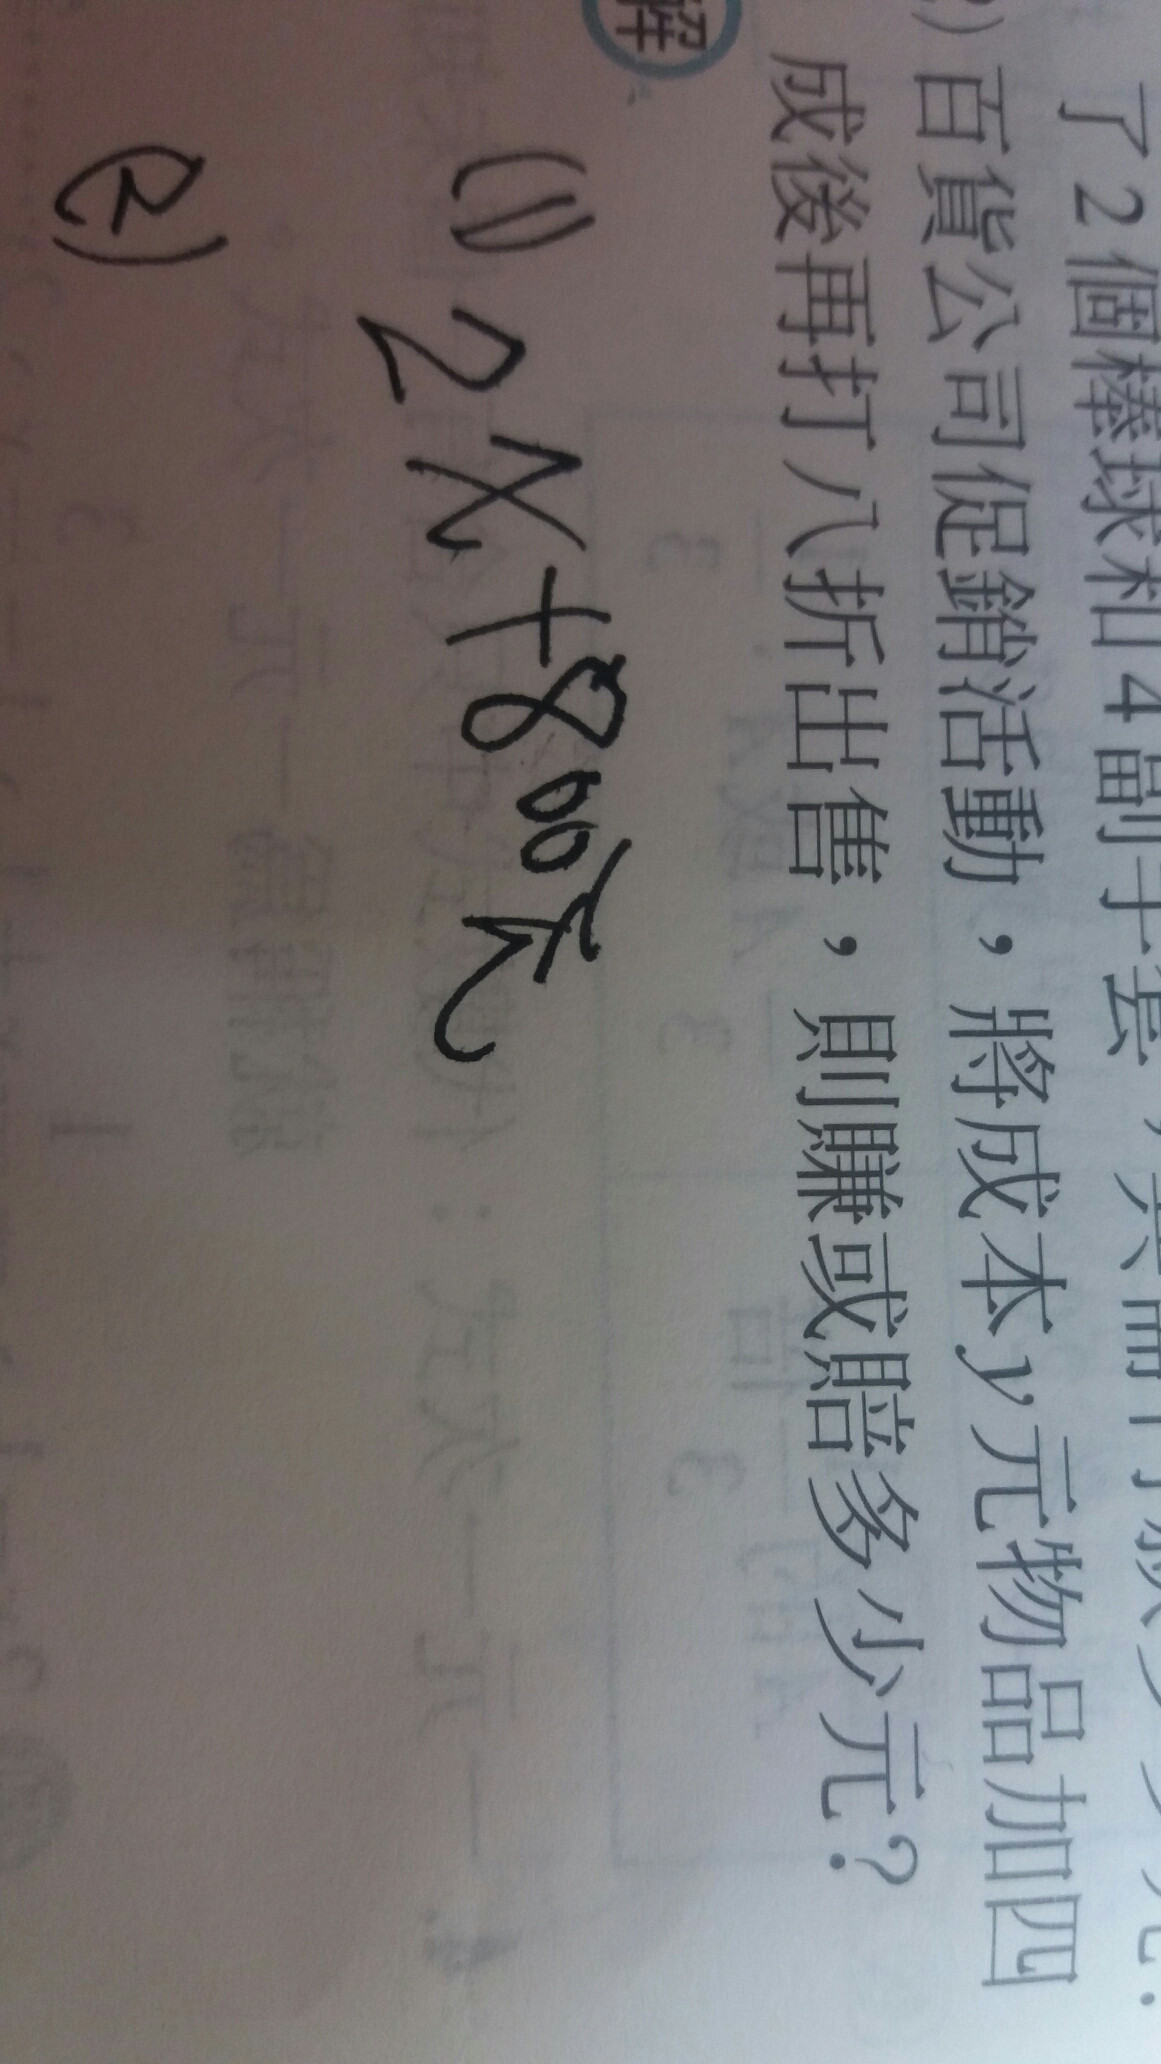 了2個棒球和4副手套，共需付
2)百貨公司促銷活動，將成本y元物品加四
成後再打八折出售，則賺或賠多少元？
解
(1) 2x+800元
(2)